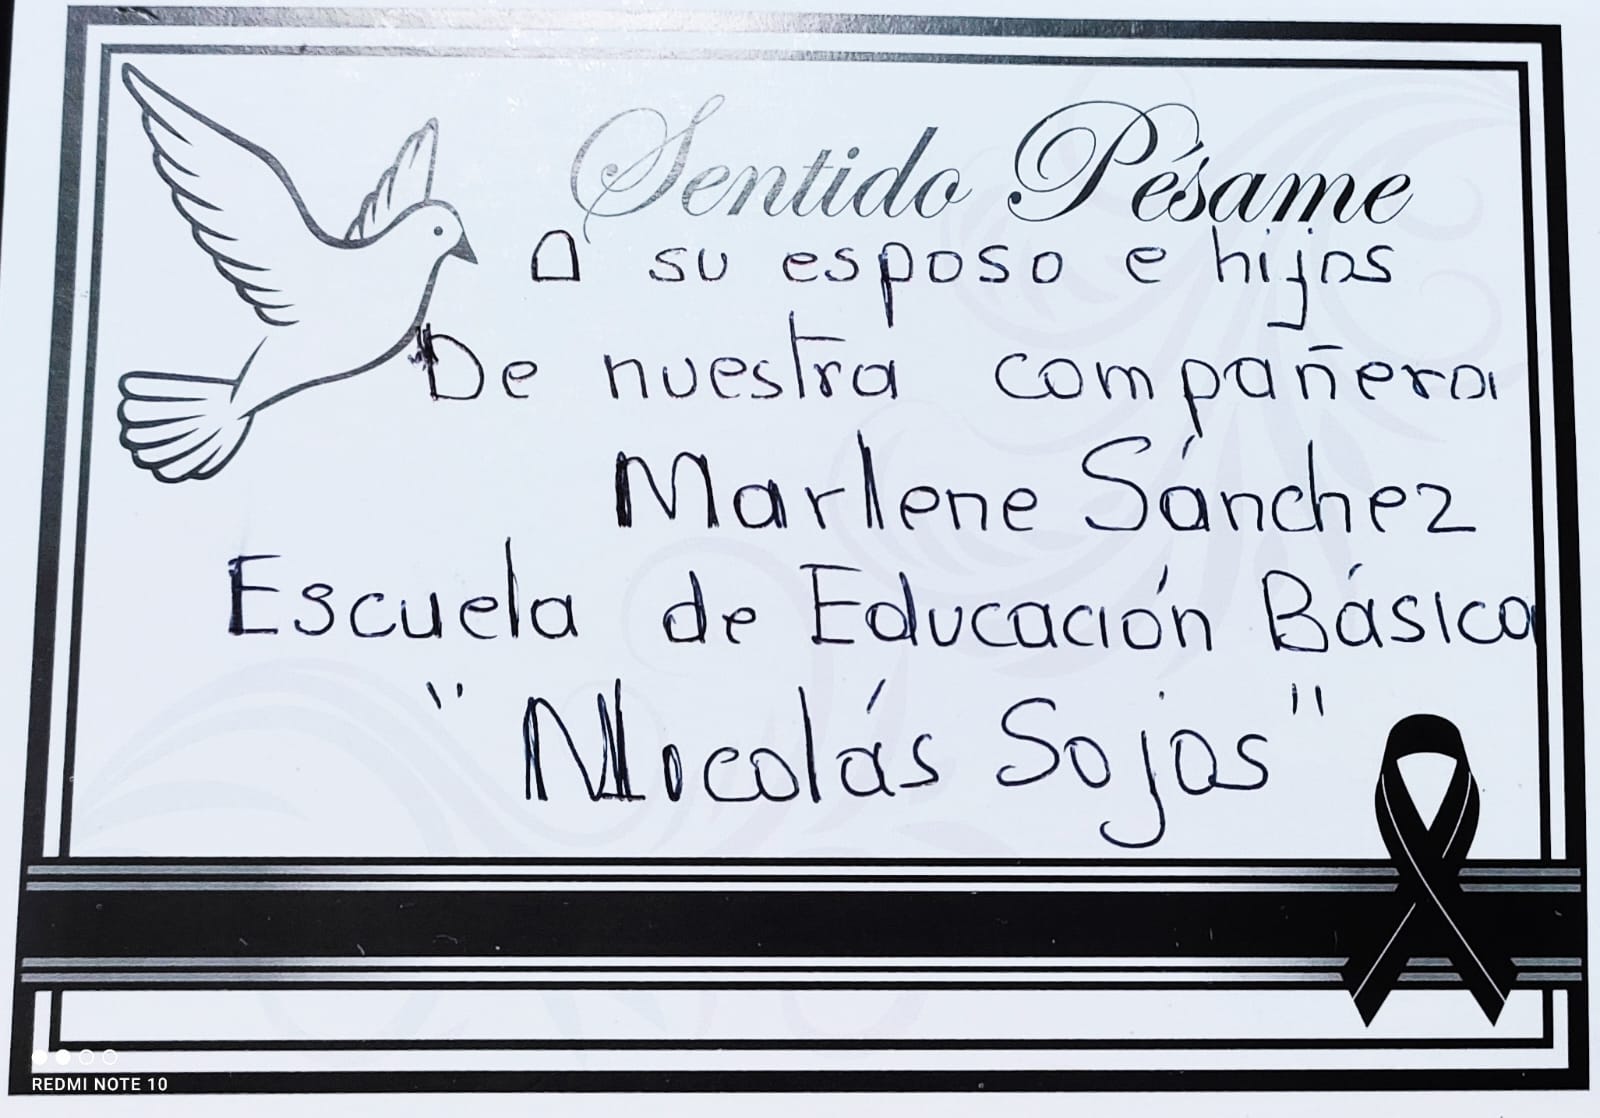 Sentido Pésame
A su esposo e hijos
De nuestra compañera
Marlene Sánchez
Escuela de Educación Básica
"Nicolás Sojos"
REDMI NOTE 10